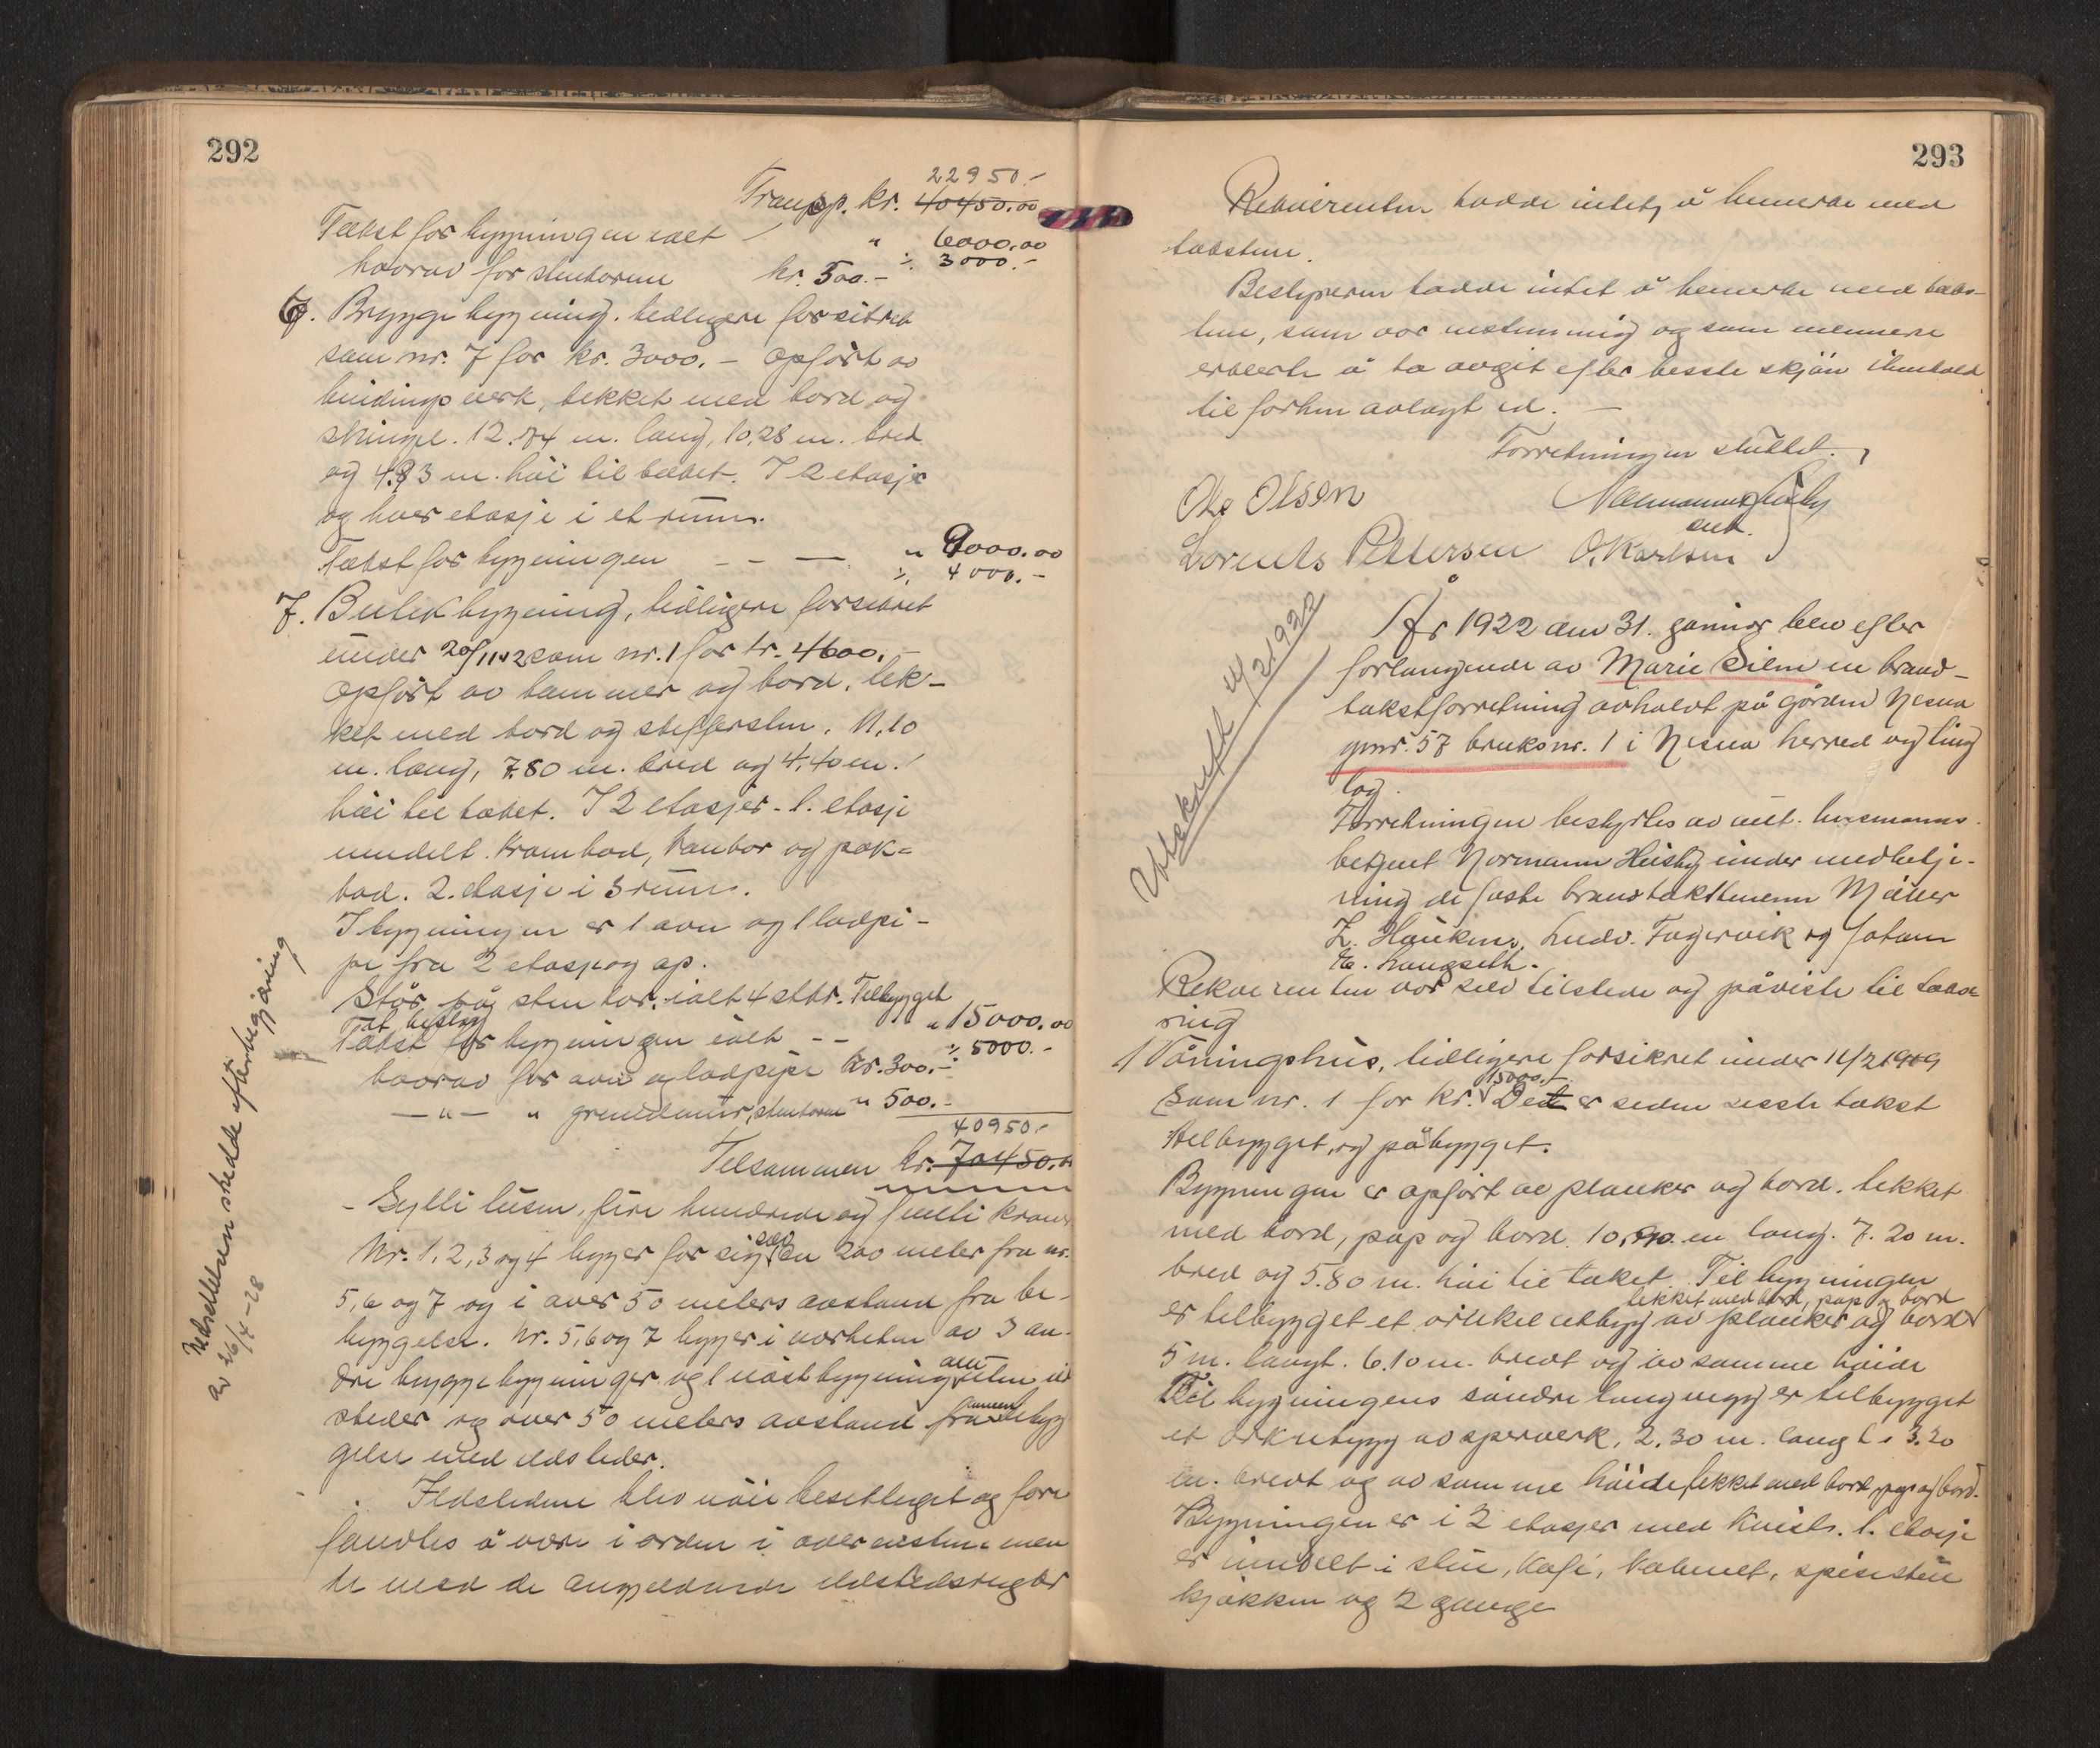 292
22950.-
Transp. kr. 40450.00
Takst for bygningen ialt " 6000.00
hvorav for stentorne kr. 500.- ÷ 3000.-
6. Bryggebygning. tidligere forsikret
som nr. 7 for kr. 3000.- Opført av
bindingsverk, tekket med bord og
shingel. 12.74 m. lang, 10,28 m. bred
og 4.93 m. høi til taket. I 2 etasje
og hver etasje i et rum.
Takst for bygningen - - — " 9000.00
÷ 4000.-
7. Butikbygning, tidligere forsikret
under 20/11 02 som nr. 1 for kr. 4600.-
Opført av tømmer og bord, tek-
ket med bord og skifersten. 11,10
m. lang, 7.80 m. bred og 4,40 m.
høi til taket. I 2 etasjer - 1. etasje
inndelt Krambod, Kontor og pak-
bod. 2. etasje i 3 rum.
I bygningen er 1 ovn og 1 lodpi-
pe fra 2 etasje og op.
Står på stentor, ialt 4 stkr. Tilbygget
Takst for bygningen ialt - - " 15000.00
hvorav for ovn og lodpipe kr. 300.- ÷ 5000.-
— " — " grundmur, stentorne " 500.-
40950.-
Tilsammen kr. 70450.00
- Sytti tusen, fire hundrede og femti kroner
Nr. 1, 2, 3 og 4 ligger for sig selv ca 200 meter fra nr.
5, 6 og 7 og i over 50 meters avstand fra be-
byggelse. Nr. 5, 6 og 7 ligger i nærheten av 3 an-
dre bryggebygninger og 1 nøstbygning uten ild
steder og over 50 meters avstand fra annen bebyg
gelse med ildsteder.
Ildstedene blev nøie besiktiget og fore
fandtes å være i orden i overensstemmen
te med de angjeldende ildstedsregler
Nedsettelsen skedde efter begjæring
av 26/4-28
293
Rekvirenten hadde intet å bemerke med
taksten.
Bestyreren hadde intet å bemerke med taks-
ten, som var enstemmig og som mennene
erklærte å ha avgit efter beste skjøn i henhold
til forhen avlagt ed. —
Forretningen sluttet.
Ole Olsen Normann Husby
Lorents Pettersen O. Karlsen
Utskrift 11/2 1922
År 1922 den 31. januar blev efter
forlangende av Marie Silen en brand-
takstforretning avholdt på gården Nesna
gnr. 57 bruksnr. 1 i Nesna herred og ting
lag.
Forretningen bestyrtes av aut. lensmanns
betjent Normann Husby under medbetje-
ning de faste brandtakstmenn Møller
Z. Hauknes, Ludv. Fagervik og Johan
E. Langseth.
Rekvirenten var selv tilstede og påviste til takse
ring
1 Våningshus, tidligere forsikret under 14/2 1909
Som nr. 1 for kr. 15000.- Det er siden siste takst
tilbygget, og påbygget.
Bygningen er opført av planker og bord. tekket
med bord, pap og bord. 10,90 m lang. 7.20 m.
bred og 5.80 m. høi til taket. Til bygningen
tekket med bord, pap og bord
er tilbygget et vinkel utbygg av planker og bord
5 m. langt. 6.10 m. bredt og av samme høide
Til bygningens søndre langvegg er tilbygget
et arkutbygg av sperverk, 2.30 m. langt, 3.20
m. bredt og av samme høide tekket med bord, pap og bord.
Bygningen er i 2 etasjer med kvist. 1. etasje
er inndelt i stue, kafe, kabinet, spisestue
kjøkken og 2 gange